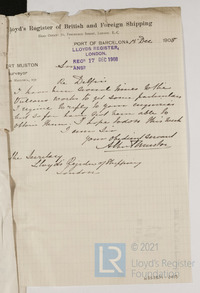 Lloyd's Register of British and Foreign Shipping
PORT OF BARCELONA, 15 Dec 1908
ST MUSTON
Surveyor
LLOYD'S REGISTER,
LONDON.
REC'D 17 DEC 1908
ANSD
Sir
Re Delfin
I have been several times to the
Vulcano works to get some particulars
I require to reply to your enquiries
but so far have not been able to
obtain them. I hope to do so this week
I am Sir
Your obedient Servant
Albert Muston
The Secretary
Lloyd's Register of Shipping
London
© 2021
Lloyd's Register
Foundation